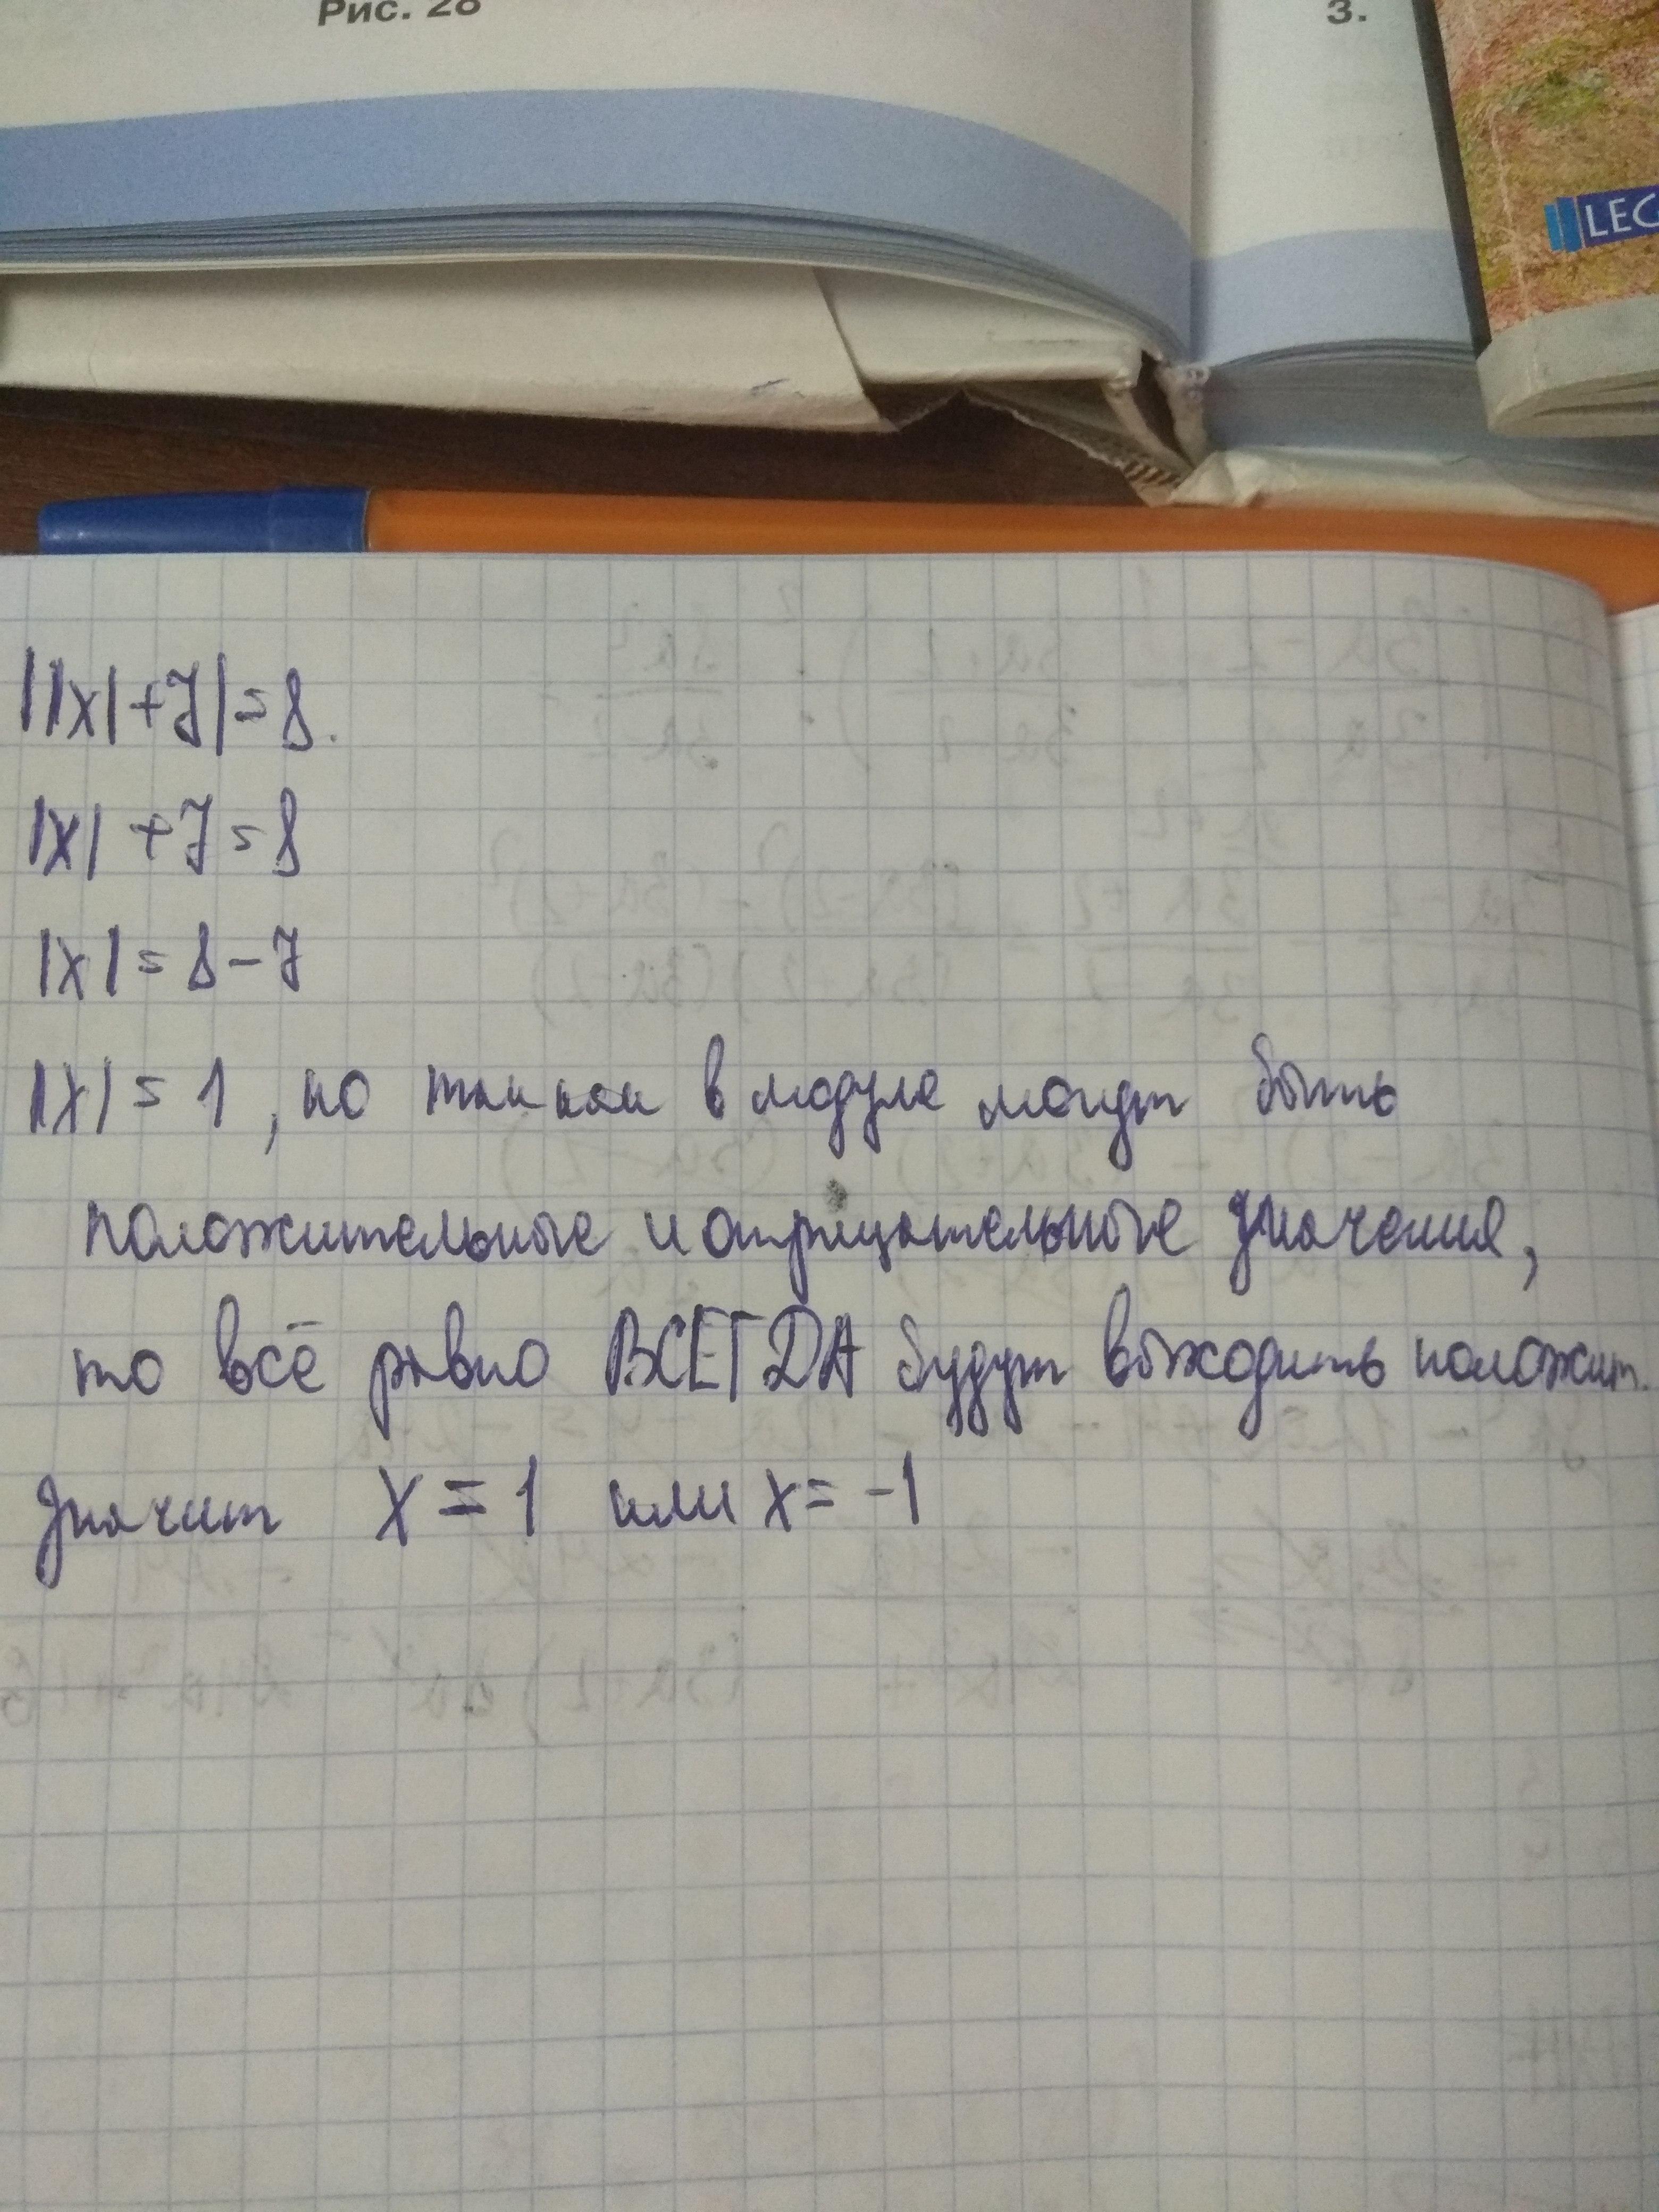 Рис. 28
3.
LEG
||x|+7|=8.
|x| +7=8
|x|=8-7
|x|=1, но так как в модуле могут быть
положительные и отрицательные значения,
то всё равно ВСЕГДА будут выходить положит.
значит x=1 или x=-1